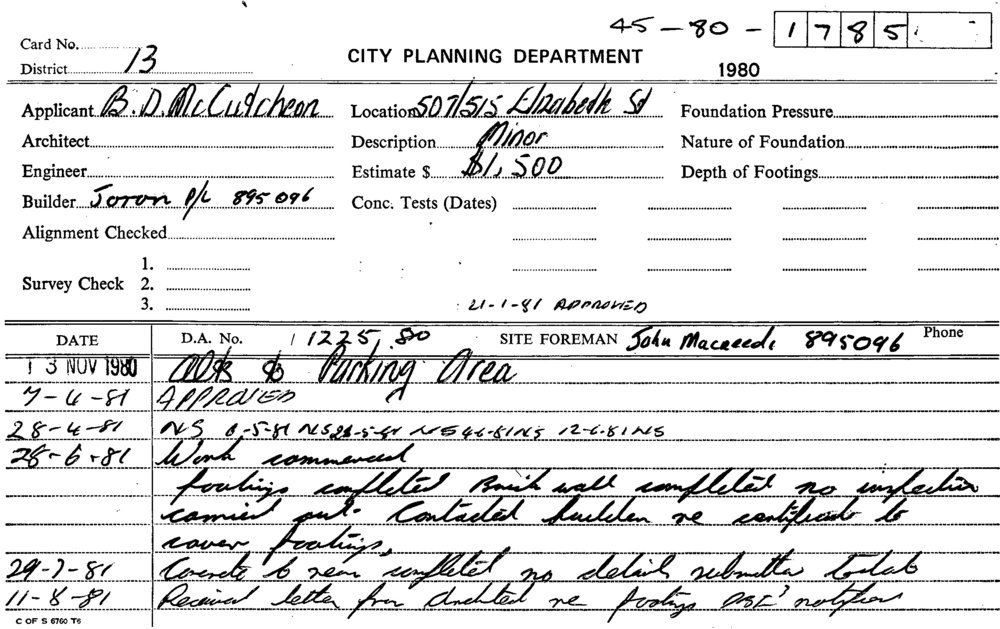 45-80-1785
Card No.
District 13
CITY PLANNING DEPARTMENT
1980
Applicant B.D. McCutcheon
Location 507/515 Elizabeth St
Foundation Pressure
Architect
Description Minor
Nature of Foundation
Engineer
Estimate $ $1,500
Depth of Footings
Builder Joron P/L 895096
Conc. Tests (Dates)
Alignment Checked
Survey Check
1.
2.
3.
21-1-81 APPROVED
DATE
D.A. No. 1225, 80
SITE FOREMAN John 895096 Phone
13 NOV 1980 to Parking Area
7-4-81 APPROVED
28-4-81 NS 8-5-81 NS 12-6-81 NS
28-6-81 Work commenced
footings completed Brick wall completed no inspection
carried out. Contacted builder re certificate to
cover footings,
29-7-81 Concrete to rear completed no details submitted todate
11-8-81 Received letter from Architect re footings notified
C OF S 6760 T6